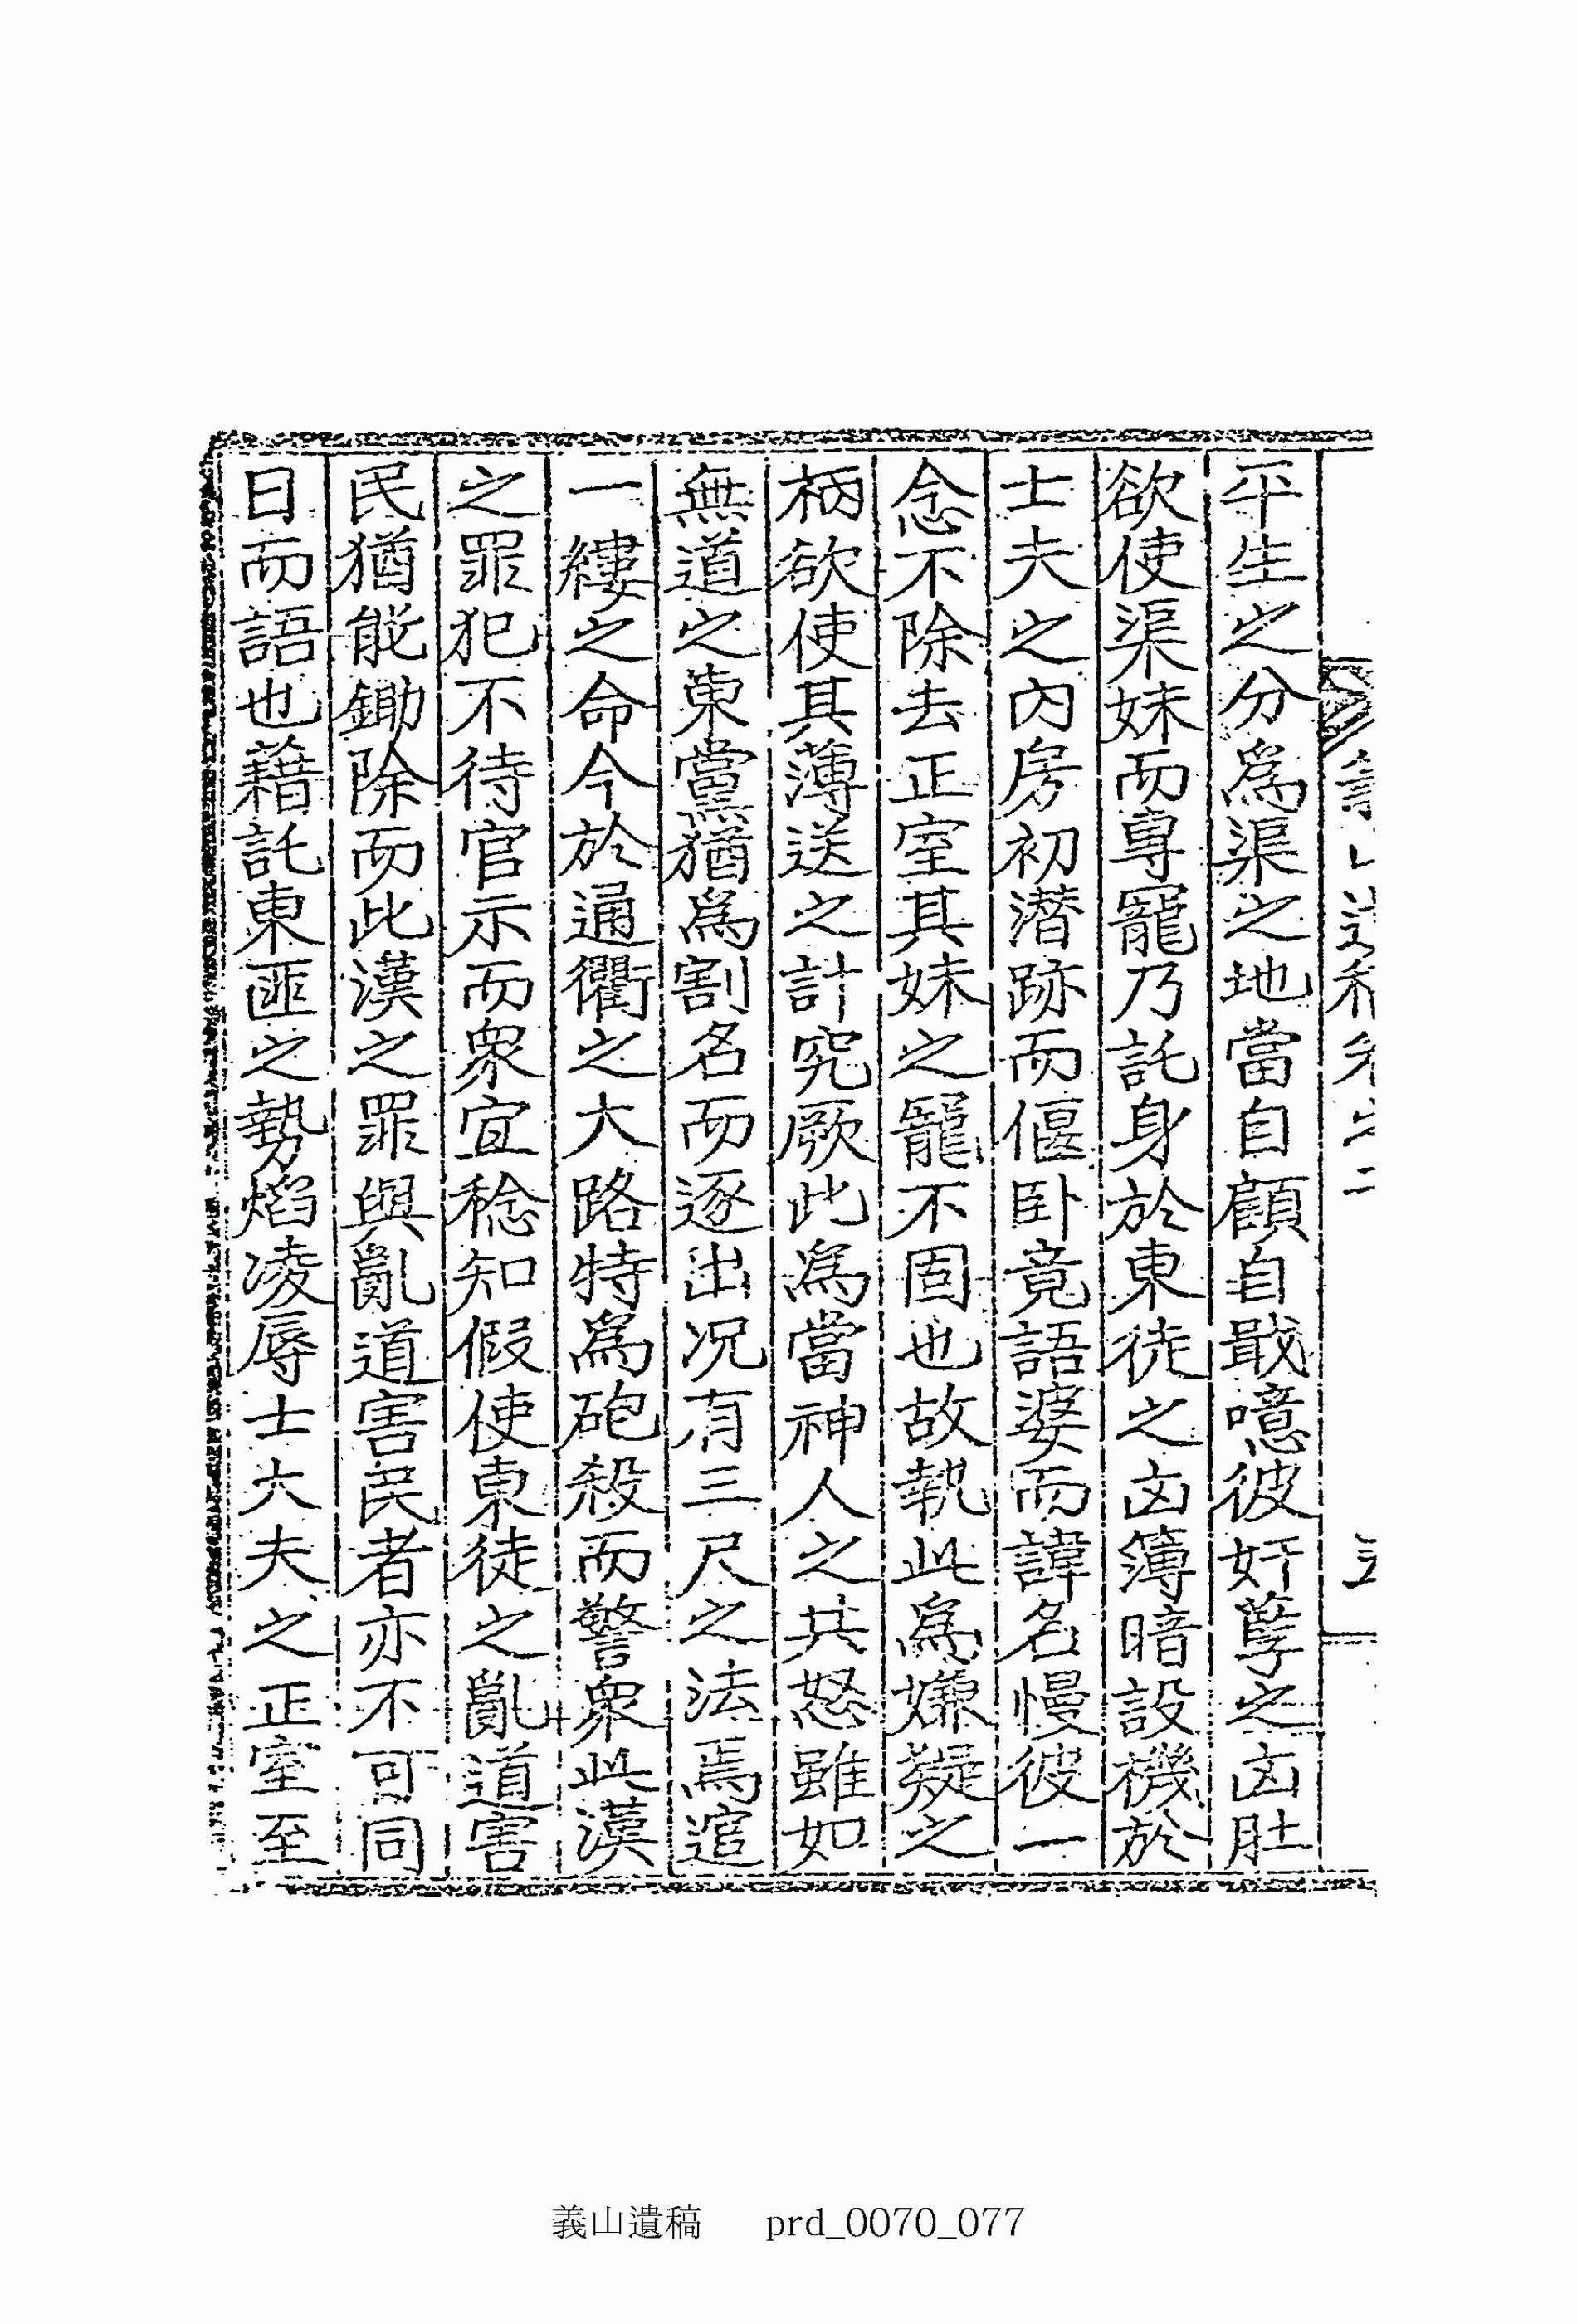 平生之分爲渠之地當自顧自戢噫彼奸孽之凶肚
欲使渠妹而專寵乃託身於東徒之凶簿暗設機於
士夫之內房初潛跡而偃卧竟語婆而諱名慢彼一
念不除去正室其妹之寵不固也故執此爲嫌疑之
柄欲使其薄送之計究厥此爲當神人之共怒雖如
無道之東黨猶爲割名而逐出况有三尺之法焉逭
一縷之命今於通衢之大路特爲砲殺而警衆此漢
之罪犯不待官示而衆宜稔知假使東徒之亂道害
民猶能鋤除而此漢之罪與亂道害民者亦不可同
日而語也藉託東匪之勢焰凌辱士大夫之正室至
義山遺稿 prd_0070_077